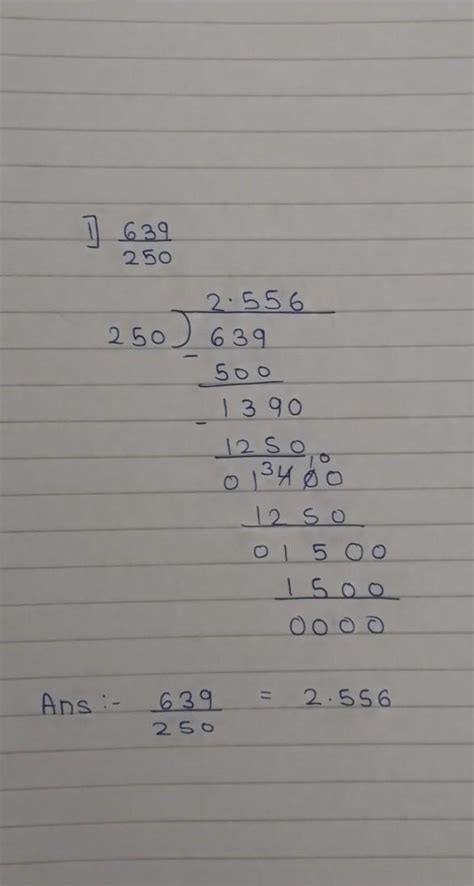 1] 639
250
2.556
250 ) 639
- 500
- 1390
1250
013400 3 10
1250
01500
1500
0000
Ans :- 639 = 2.556
250